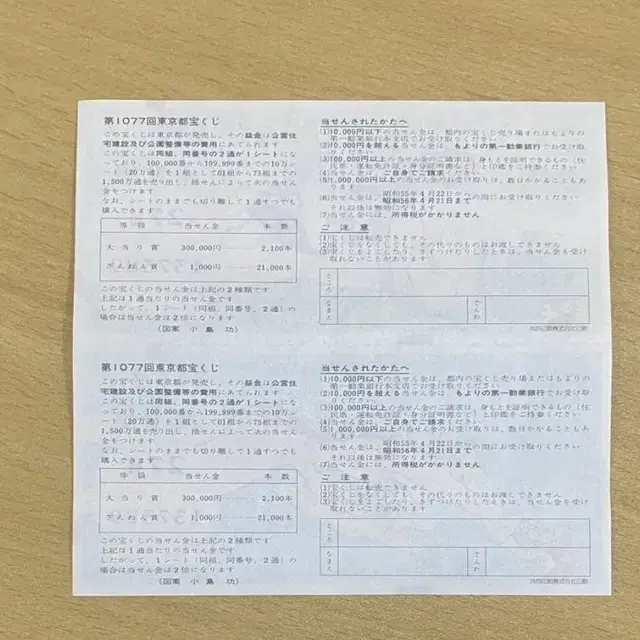 第1077回東京都宝くじ
この宝くじは東京都が発売し、その益金は公営住
宅建設及び公園整備等の費用にあてられます
この宝くじは同組、同番号の2通が1シートにな
っており、100,000番から199,999番までの10万シ
ート(20万通)を1組として01組から75組まで
1,500万通を売り出し、抽せんによって次の当せん
金をつけます
なお、シートのままでも切り離して1通ずつでも
購入できます
等級 当せん金 本数
大当り賞 300,000円 2,100本
ざんねん賞 1,000円 21,000本
この宝くじの当せん金は上記の2種類です
上記は1通当たりの当せん金です
したがって、1シート(同組、同番号、2通)の
場合は当せん金は2倍になります
(図案 小島 功)
当せんされたかたへ
(1)10,000円以下の当せん金は、都内の宝くじ売り場またはもよりの
第一勧業銀行本支店でお受け取りください
(2)10,000円を超える当せん金は、もよりの第一勧業銀行でお受け取
りください
(3)100,000円以上の当せん金のご請求は、身もとを証明できるもの(住
民票・運転免許証・身分証明書など)と印鑑をご持参ください
(4)当せん金は、ご自身でご請求ください
(5)1,000,000円以上の当せん金のお受け取りは、数日かかることもあ
ります
(6)当せん金は、昭和55年4月22日から
昭和56年4月21日までの間にお受け取りください
それ以後は無効になります
(7)当せん金には、所得税がかかりません
ご注意
(1)宝くじは転売できません
(2)宝くじをなくしても、その代りのものはお渡しできません
(3)宝くじをよごしたり、きずつけたりしたときは、当せん金を受け
取れないことがあります
ところ
なまえ
でんわ
第1077回東京都宝くじ
この宝くじは東京都が発売し、その益金は公営住
宅建設及び公園整備等の費用にあてられます
この宝くじは同組、同番号の2通が1シートにな
っており、100,000番から199,999番までの10万シ
ート(20万通)を1組として01組から75組まで
1,500万通を売り出し、抽せんによって次の当せん
金をつけます
なお、シートのままでも切り離して1通ずつでも
購入できます
等級 当せん金 本数
大当り賞 300,000円 2,100本
ざんねん賞 1,000円 21,000本
この宝くじの当せん金は上記の2種類です
上記は1通当たりの当せん金です
したがって、1シート(同組、同番号、2通)の
場合は当せん金は2倍になります
(図案 小島 功)
当せんされたかたへ
(1)10,000円以下の当せん金は、都内の宝くじ売り場またはもよりの
第一勧業銀行本支店でお受け取りください
(2)10,000円を超える当せん金は、もよりの第一勧業銀行でお受け取
りください
(3)100,000円以上の当せん金のご請求は、身もとを証明できるもの(住
民票・運転免許証・身分証明書など)と印鑑をご持参ください
(4)当せん金は、ご自身でご請求ください
(5)1,000,000円以上の当せん金のお受け取りは、数日かかることもあ
ります
(6)当せん金は、昭和55年4月22日から
昭和56年4月21日までの間にお受け取りください
それ以後は無効になります
(7)当せん金には、所得税がかかりません
ご注意
(1)宝くじは転売できません
(2)宝くじをなくしても、その代りのものはお渡しできません
(3)宝くじをよごしたり、きずつけたりしたときは、当せん金を受け
取れないことがあります
ところ
なまえ
でんわ